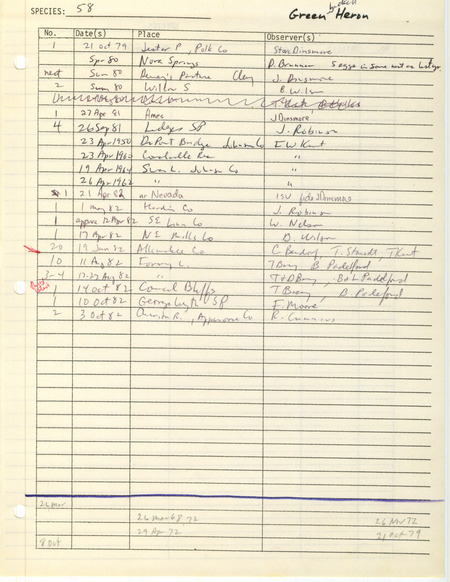 SPECIES: 58
Green Heron
No. Date(s) Place Observer(s)
1 21 Oct 79 Jester P, Polk Co Steve Dinsmore
Spr 80 Nora Springs
nest Sum 80 Pasture Clay J. Dinsmore
2 Sum 80 Willow S B. Wilson
1 27 Apr 81 Ames J Dinsmore
4 26 Sep 81 Ledges SP J. Robinson
23 Apr 1950 Bridge Johnson Co F W Kent
23 Apr 1960 Coralville "
19 Apr 1964 Johnson Co "
26 Apr 1962 " "
1 21 Apr 82 nr Nevada ISU fide J Dinsmore
1 1 May 82 Hardin Co J. Robinson
1 approx 12 Apr 82 SE Linn Co W. Nelson
1 17 Apr 82 N E Mills Co B. Wilson
20 19 Jun 82 Allamakee Co C Bendorf T. Staudt T Kent
10 11 Aug 82 T Bray B Padelford
3-4 82 " T & D Bray, B & L Padelford
1 14 Oct 82 Council Bluffs T Bray, B. Padelford
1 10 Oct 82 George Wyth SP F. Moore
2 3 Oct 82 Chariton R., Appanoose Co R. Cummins
26 Mar
26 Mar 68 72 26 Nov 72
29 Apr 72 21 Oct 79
8 Oct